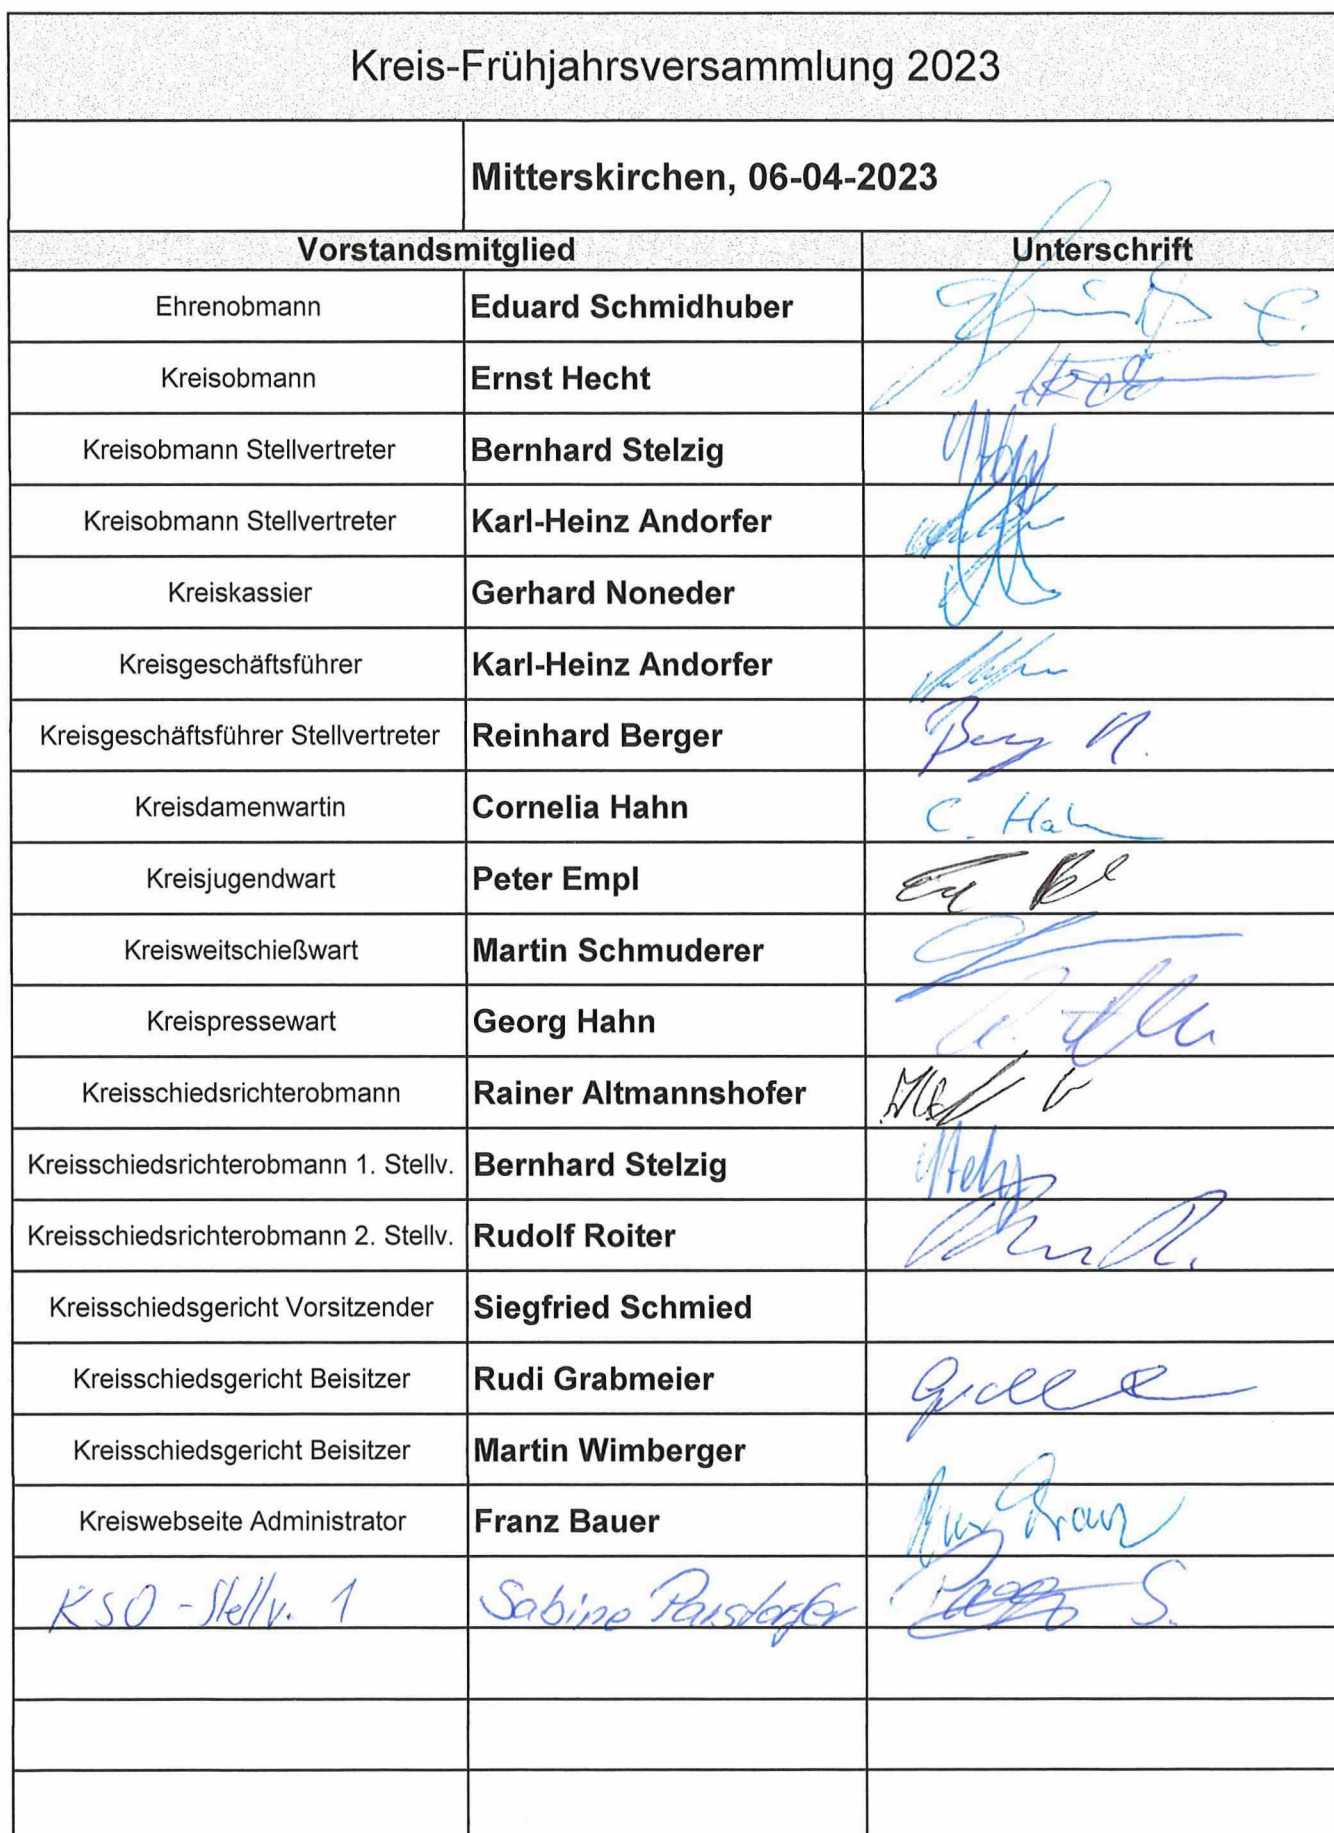 Kreis-Frühjahrsversammlung 2023
Mitterskirchen, 06-04-2023
Vorstandsmitglied Unterschrift
Ehrenobmann Eduard Schmidhuber
Kreisobmann Ernst Hecht
Kreisobmann Stellvertreter Bernhard Stelzig
Kreisobmann Stellvertreter Karl-Heinz Andorfer
Kreiskassier Gerhard Noneder
Kreisgeschäftsführer Karl-Heinz Andorfer
Kreisgeschäftsführer Stellvertreter Reinhard Berger
Kreisdamenwartin Cornelia Hahn C. Hahn
Kreisjugendwart Peter Empl
Kreisweitschießwart Martin Schmuderer
Kreispressewart Georg Hahn
Kreisschiedsrichterobmann Rainer Altmannshofer
Kreisschiedsrichterobmann 1. Stellv. Bernhard Stelzig
Kreisschiedsrichterobmann 2. Stellv. Rudolf Roiter
Kreisschiedsgericht Vorsitzender Siegfried Schmied
Kreisschiedsgericht Beisitzer Rudi Grabmeier
Kreisschiedsgericht Beisitzer Martin Wimberger
Kreiswebseite Administrator Franz Bauer
KSO-Stellv. 1 Sabine